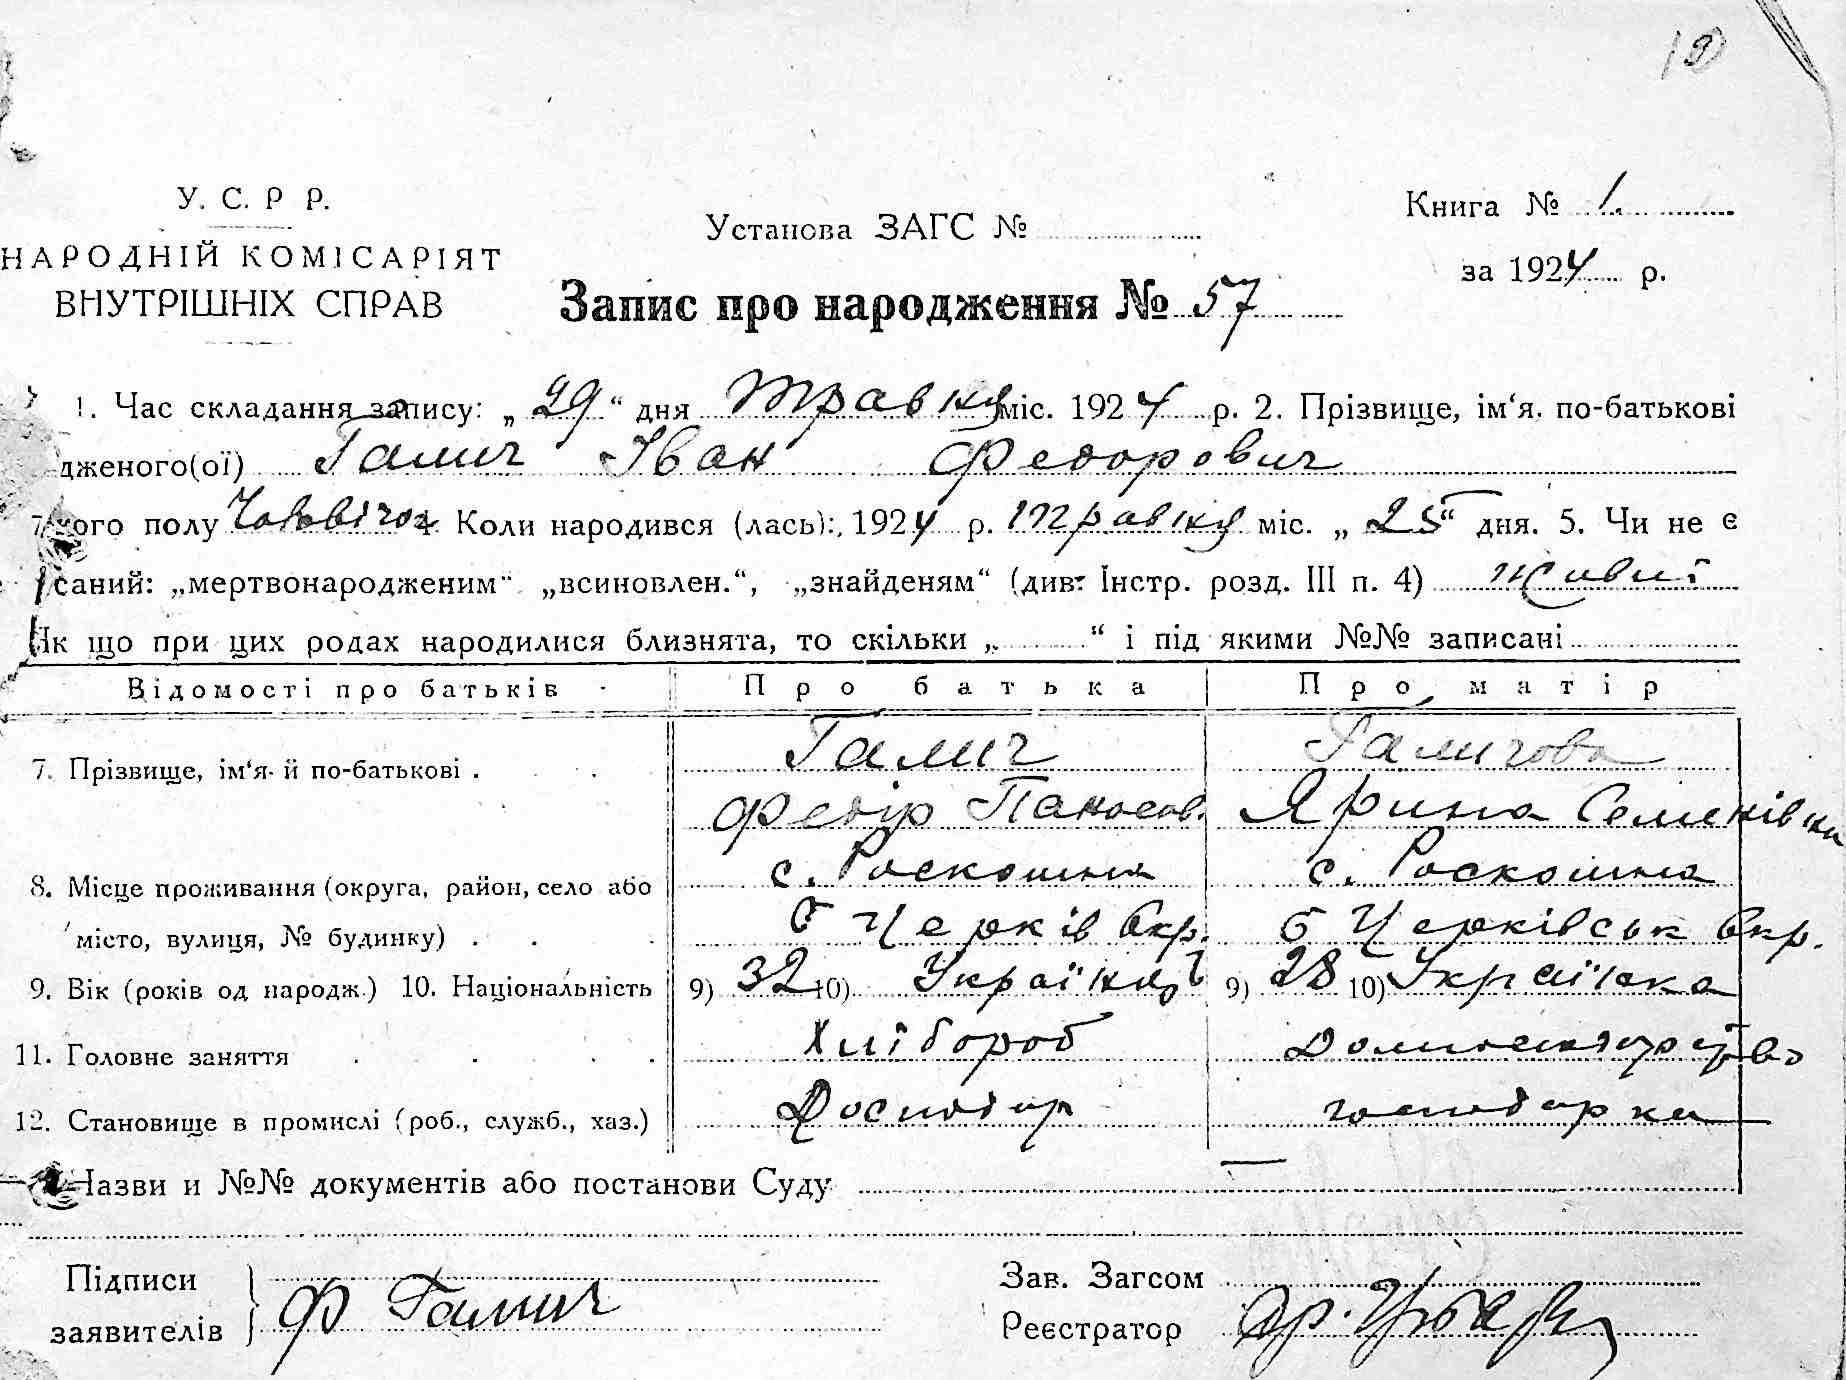 10
У. С. Р Р.
НАРОДНІЙ КОМІСАРІЯТ
ВНУТРІШНІХ СПРАВ
Установа ЗАГС №
Книга № 1.
за 1924 р.
Запис про народження № 57
1. Час складання запису: „29“ дня Травня міс. 1924 р. 2. Прізвище, ім‘я. по-батькові
дженого(ої) Галич Іван Федорович
кого полу Чоловічої 4 Коли народився (лась):, 1924 р. травня міс. „25“ дня. 5. Чи не є
саний: „мертвонародженим“ „всиновлен.“, „знайденям“ (див: Інстр. розд. III п. 4) живий
Як що при цих родах народилися близнята, то скільки „ “ і під якими №№ записані
Відомості про батьків Про батька Про матір
7. Прізвище, ім‘я й по-батькові . Галич Галичова
Федір Панасов. Ярина Семенівна
8. Місце проживання (округа, район, село або с. Роскошна с. Роскошна
місто, вулиця, № будинку) . Б Церків Окр. Б Церківськ Окр.
9. Вік (років од народж.) 10. Національність 9) 32 10) Українець 9) 28 10) Українка
11. Головне заняття Хлібороб Домогосподарство
12. Становище в промислі (роб., служб., хаз.) Господар господарка
Назви и №№ документів або постанови Суду —
Підписи
заявителів Ф Галич
Зав. Загсом
Реєстратор